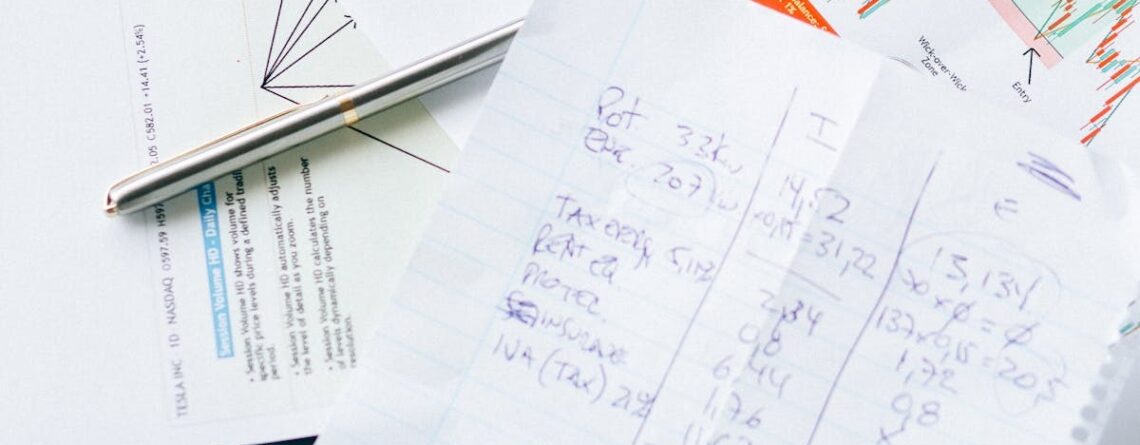 TESLA INC 1D NASDAQ O597.59 H597
2.05 C582.01 +14.41 (+2.54%)
Session Volume HD - Daily Cha
• Session Volume HD shows volume for
specific price levels during a defined tradi
period.
• Session Volume HD automatically adjusts
the level of detail as you zoom.
• Session Volume HD calculates the number
of levels dynamically depending on
resolution.
Wick-over-Wick
Zone
Entry
Pot. 33kw
Ene. 207 kw
TAX energy 5,112
RENT EQ.
PROTEC.
INSURANCE
IVA (TAX) 21%
I
14,52
x0,15 = 31,22
2,34
0,8
6,44
1,76
E
13,134
70 x 0 = 0
137 x 0,15 = 20,5
1,72
0,8
x